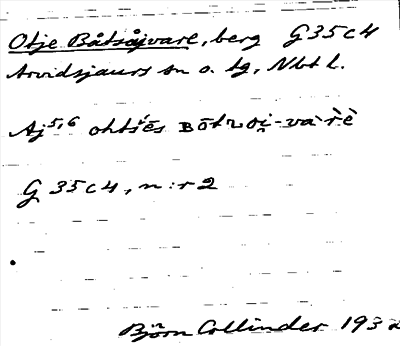 Otje Båtsåjvare, berg G35c4
Arvidsjaurs sn o. tg, Nbt l.
Aj⁵,⁶ ohtsēs
G 35c4, n:r 2
Björn Collinder 193